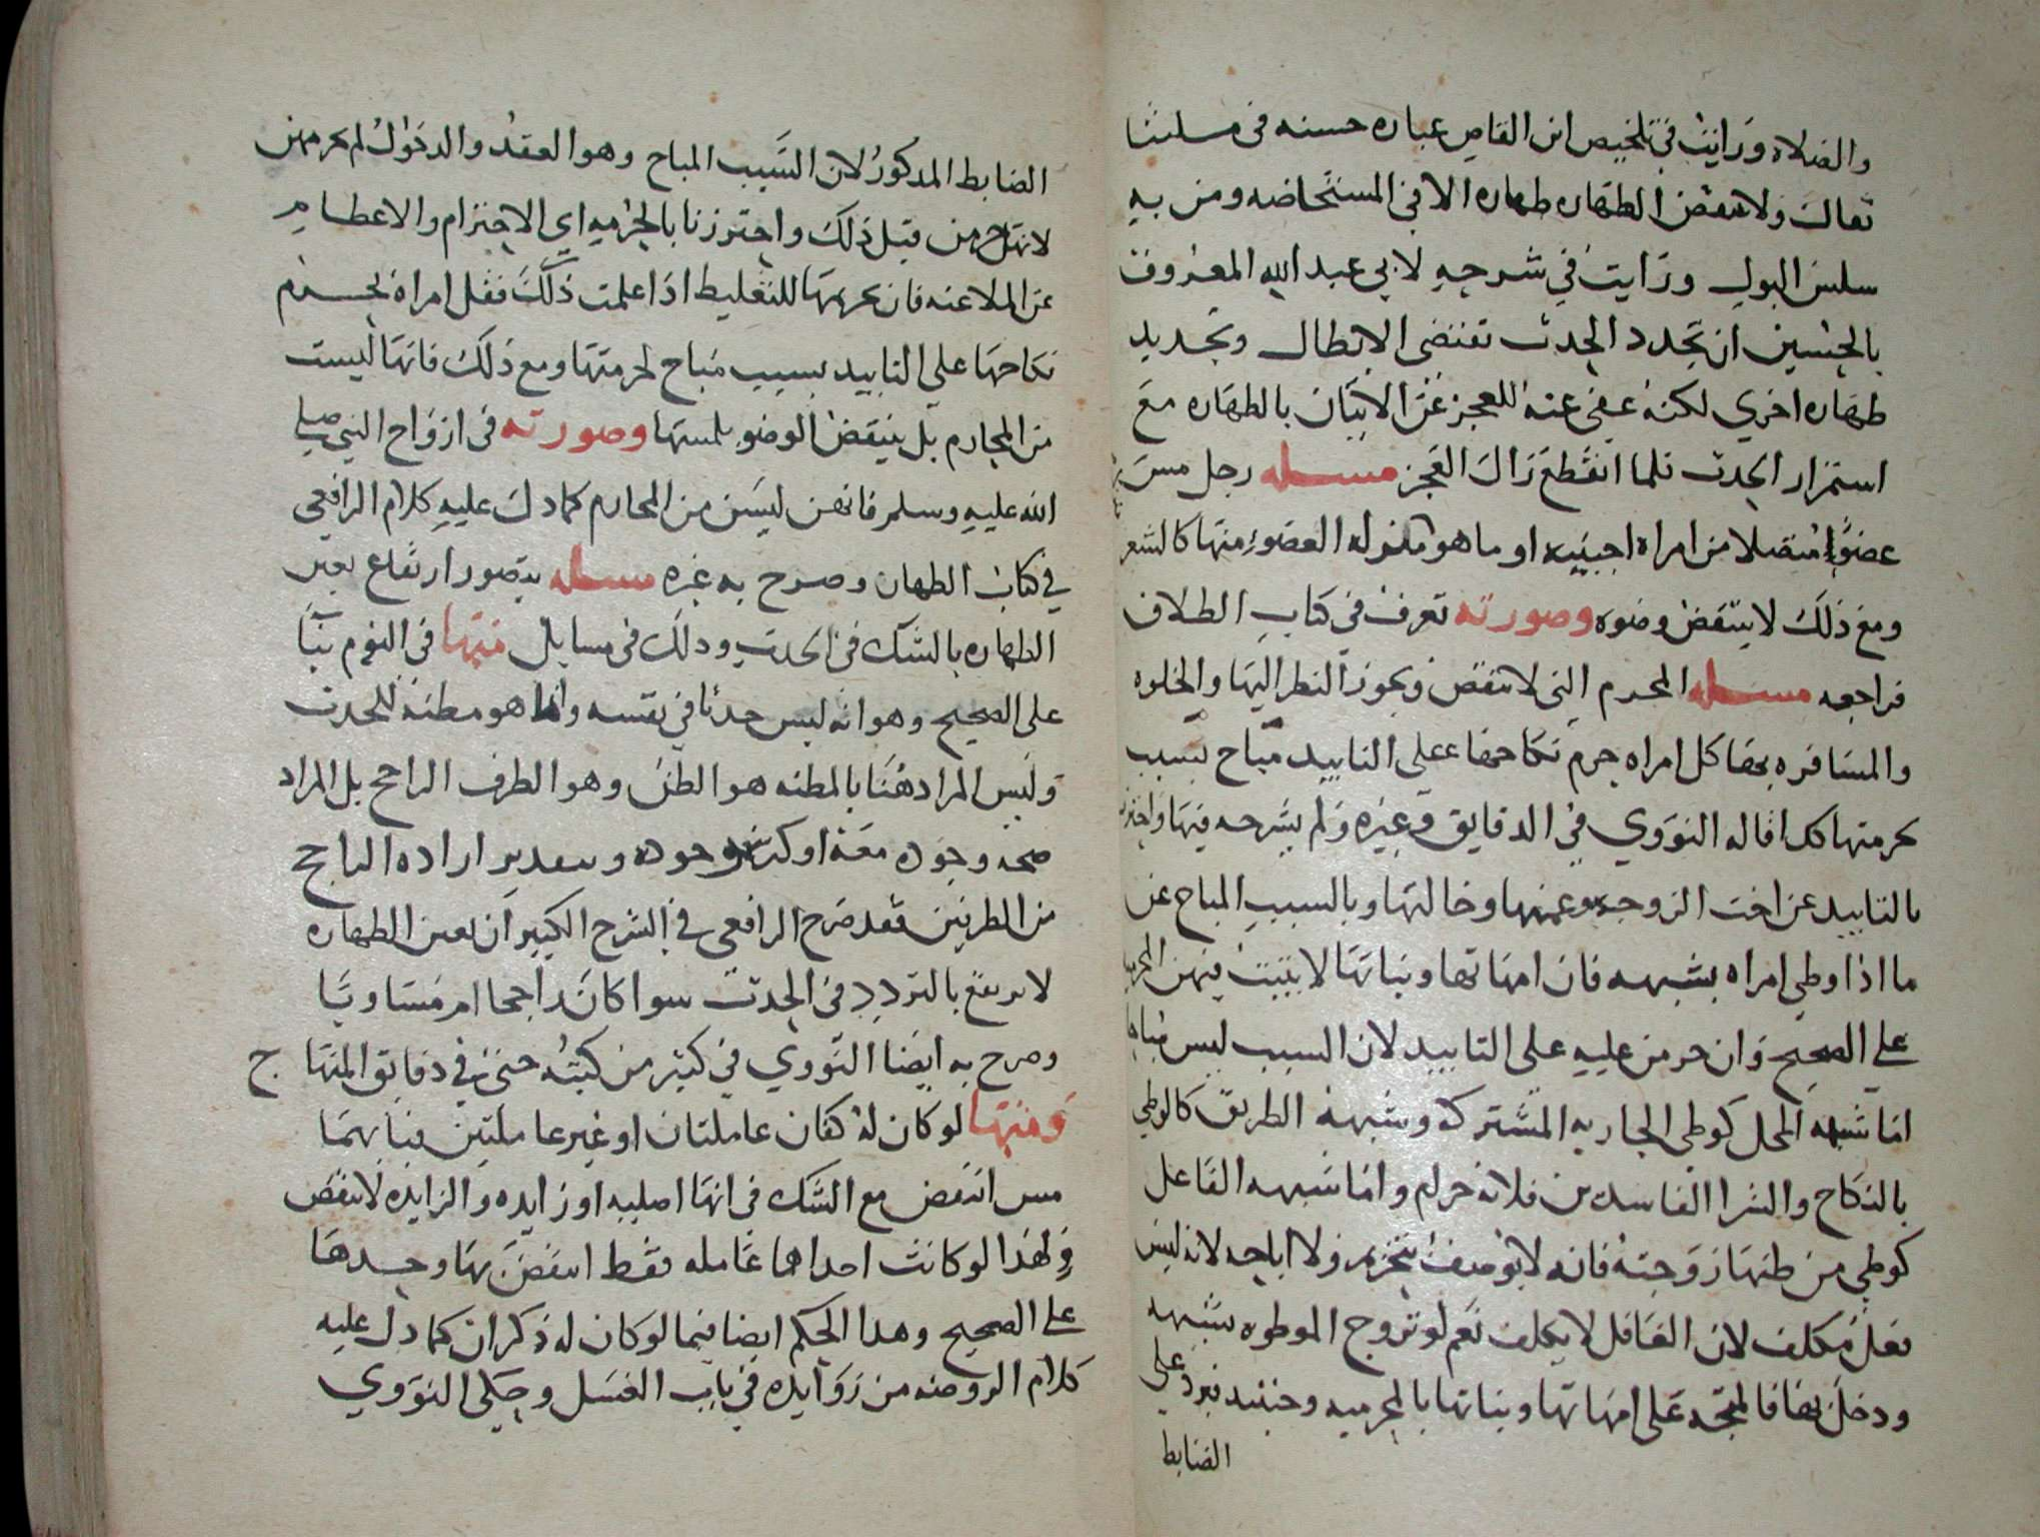 والصلاه ورايت في تلخيص ابن القاص عباره حسنه في مسلتنا
فقال ولا تنقض الطهاره طهاره الا في المستحاضه ومن به
سلس البول ورايت في شرحه لابي عبد الله المعروف
بالختن ان تجدد الحدث تقتضي الابطال وتجديد
طهاره اخري لكنه عفي عنه للعجز عن الاتيان بالطهاره مع
استمرار الحدث فلما انقطع زال العجز مسله رجل مس
عضوا متصلا من امراه اجنبيه او ما هو بمنزله العضو منها كالشعر
ومع ذلك لا ينتقض وضوه وصورته تعرف في كتاب الطلاق
فراجعه مسله المحرم التي لا تنقض ويجوز النظر اليها والخلوه
والمسافره بها كل امراه حرم نكاحها على التابيد مباح بسبب
حرمتها كذا قاله النووي في الدقايق وغيره ولم يشرحه فيها واحترز
بالتابيد عن اخت الزوجه وعمتها وخالتها وبالسبب المباح عن
ما اذا وطي امراه بشبهه فان امهاتها وبناتها لا يثبت فيهن المحرميه
على الصحيح وان حرمن عليه على التابيد لان السبب ليس مباحا
اما شبهه المحل كوطي الجاريه المشتركه وشبهه الطريق كالوطي
بالنكاح والشرا الفاسدين فلانه حرام واما شبهه الفاعل
كوطي من ظنها زوجته فانه لا يوصف بتحريم ولا اباحه لانه ليس
فعل مكلف لان الغافل لا يكلف نعم لو تزوج الموطوه بشبهه
ودخل بها فالمتجه على امهاتها وبناتها بالمحرميه وحينئد فيرد على
الضابط
الضابط المدكور لان السبب المباح وهو العقد والدخول لم يحرمهن
لانهن حرمن قبل ذلك واحترزنا بالحرميه اي الاحترام والاعظام
عن الملاعنه فان تحريمها للتغليط اذا علمت ذلك فقل امراه يحرم
نكاحها علي التابيد بسبب مباح لحرمتها ومع ذلك فانها ليست
من المحارم بل ينتقض الوضو بلمسها وصورته في ازواج النبي صلى
الله عليه وسلم فانهن ليسن من المحارم كما دل عليه كلام الرافعي
في كتاب الطهاره وصرح به غيره مسله يتصور ارتفاع يقين
الطهاره بالشك في الحدث ودلك في مسايل منها في النوم بنا
على الصحيح وهو انه ليس حدثا في نفسه وانما هو مطنه للحدث
وليس المراد هنا بالمطنه هو الظن وهو الطرف الراجح بل المراد
صحه وجوده معه او كثره وجوده وبتقدير اراده الراجح
من الطرفين فقد صرح الرافعي في الشرح الكبير ان يقين الطهاره
لا يرتفع بالتردد في الحدث سوا كان راجحا ام مساويا
وصرح به ايضا النووي في كثير من كتبه حتى في دقايق المنهاج
ومنها لو كان له كفان عاملتان او غير عاملتين فبايهما
مس انتقض مع الشك في انها اصليه او زايده والزايده لا تنقض
ولهذا لو كانت احداهما عامله فقط انتقض بها وحدها
على الصحيح وهذا الحكم ايضا فيما لو كان له ذكران كما دل عليه
كلام الروضه من زوايده في باب الغسل وحكى النووي